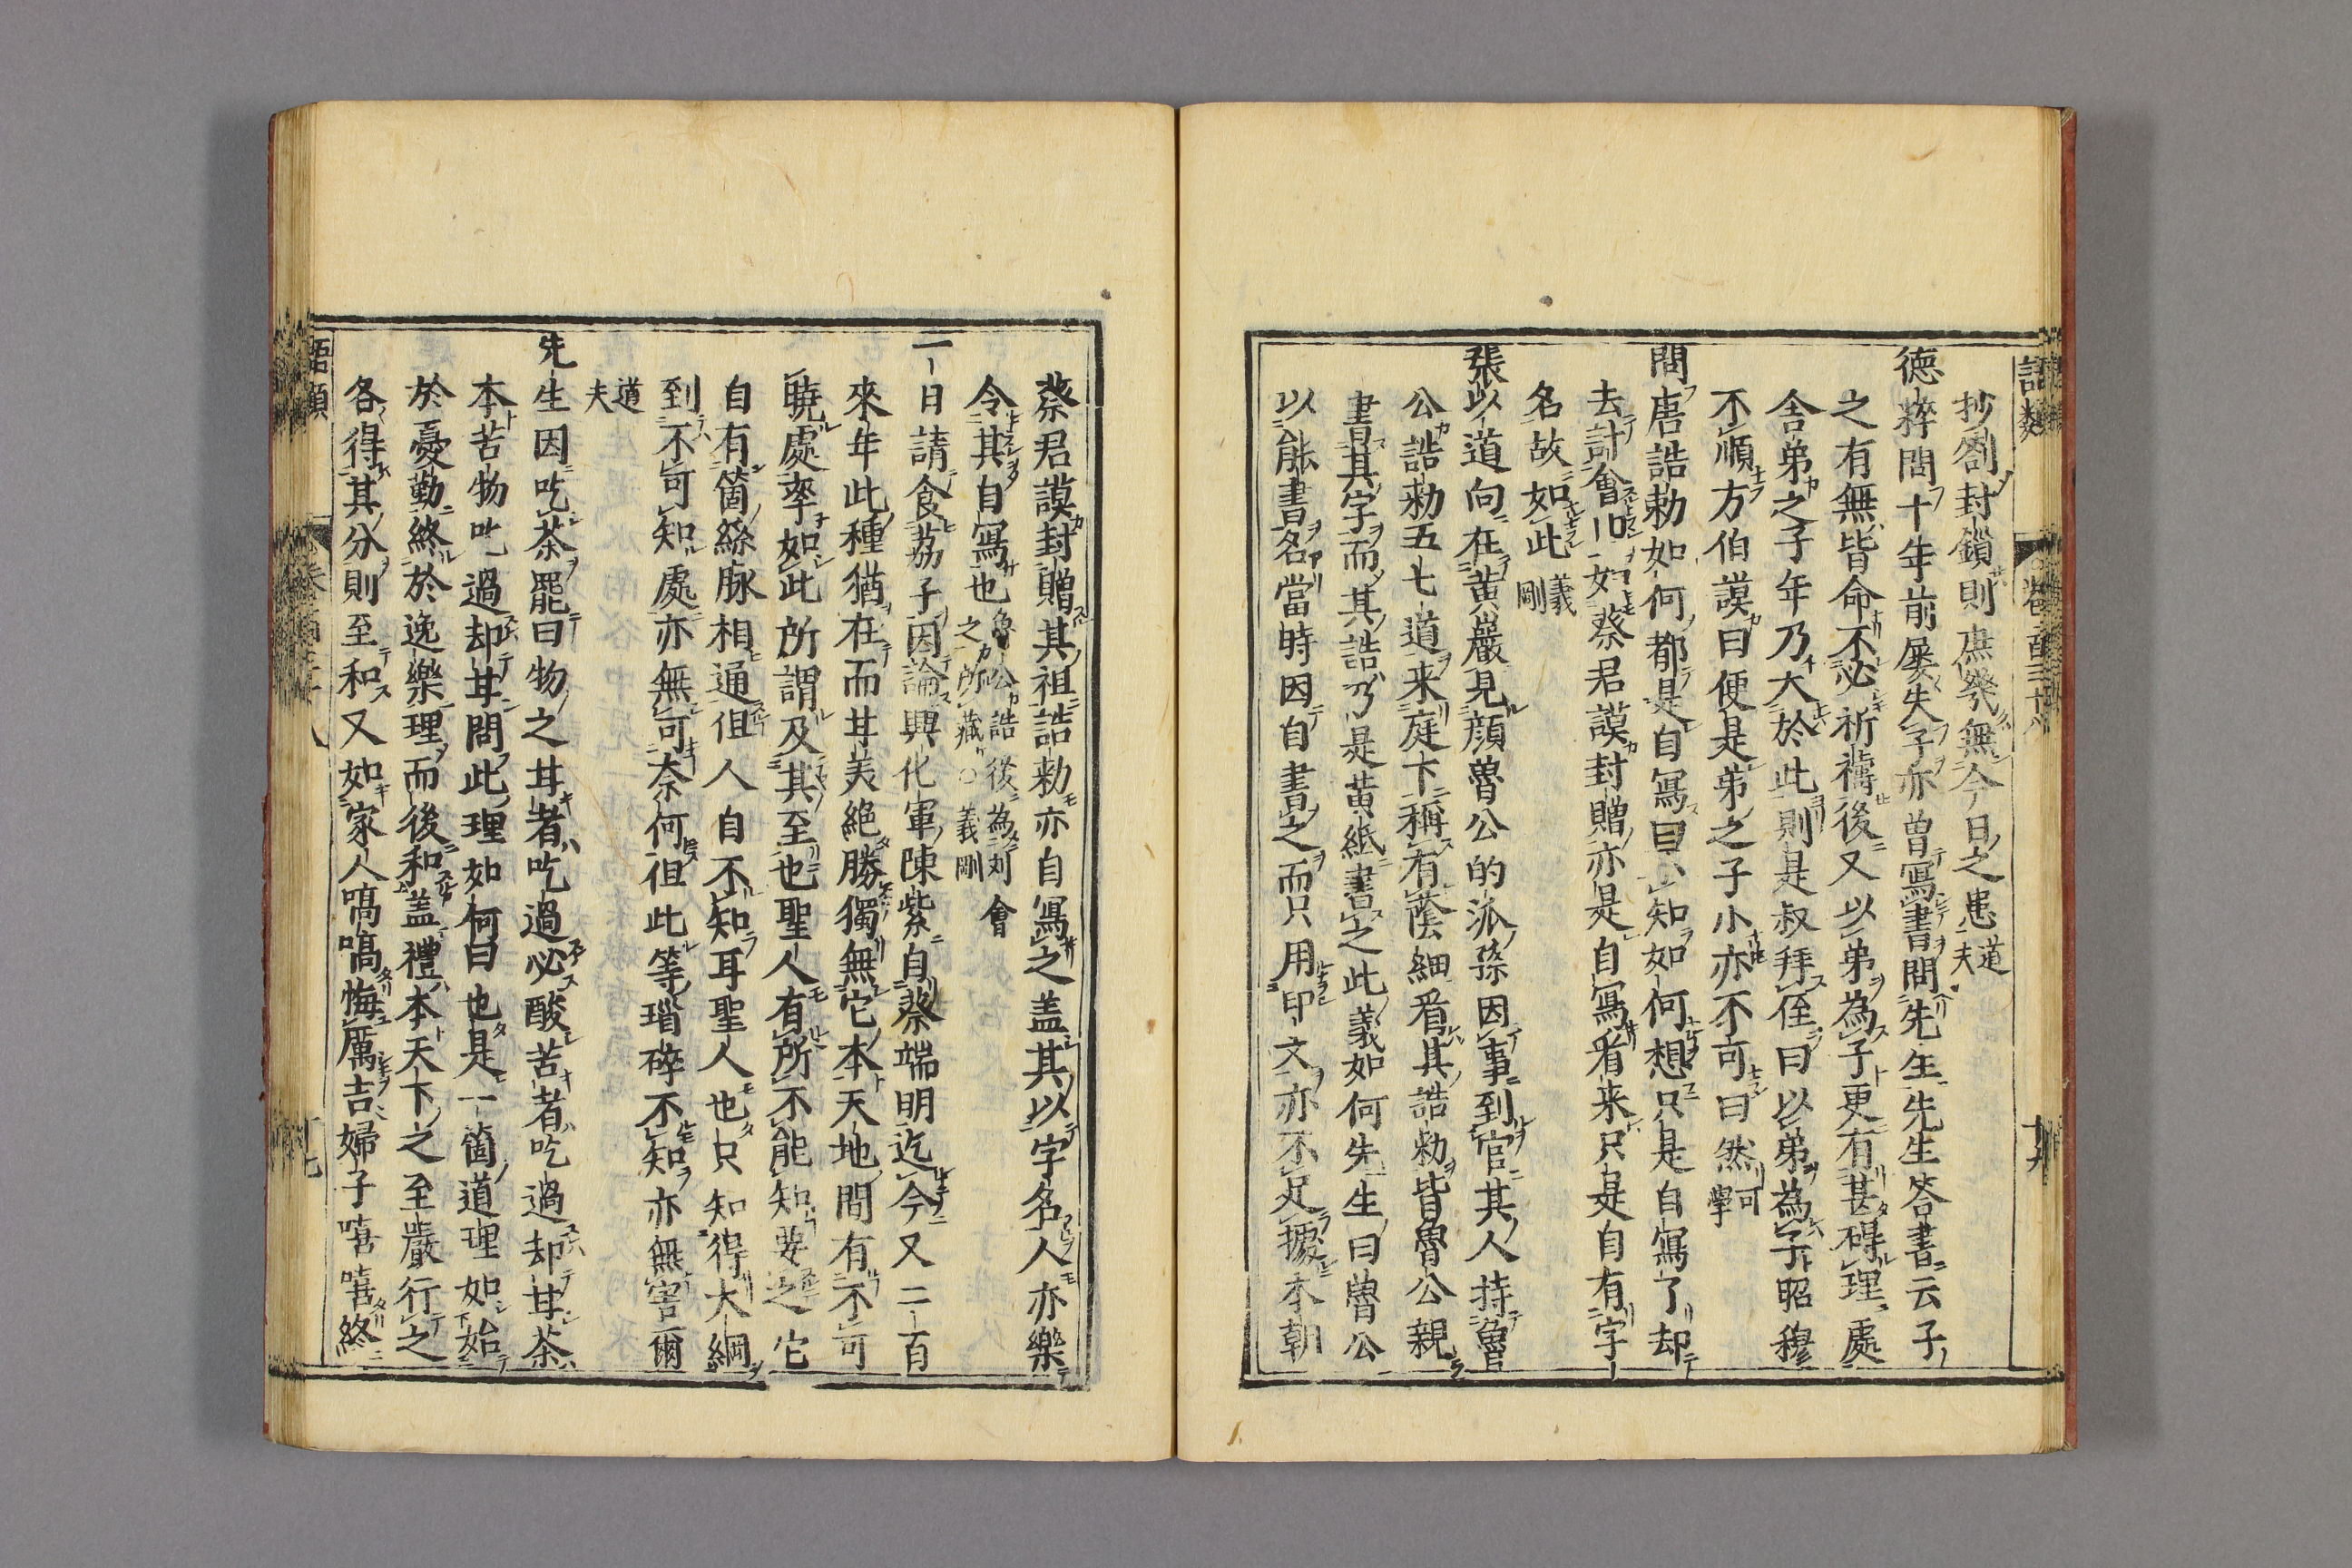 語類
卷一百三十八
抄劄封鎖則庶幾無今日之患道夫
德粹問十年前屡失子亦曽寫書問先生先生答書云子
之有無皆命不必祈禱後又以弟為子更有甚碍理處
舎弟之子年乃大於此則是叔拜侄曰以弟為子昭穆
不順方伯謨曰便是弟之子小亦不可曰然可學
問唐誥勅如何都是自寫曰不知如何想只是自寫了却
去計會印如蔡君謨封贈亦是自寫看来只是自有字
名故如此義剛
張以道向在黄巖見顔魯公的派孫因事到官其人持魯
公誥勅五七道来庭下稱有蔭細看其誥勅皆魯公親
書其字而其誥乃是黄紙書之此義如何先生曰魯公
以能書名當時因自書之而只用印文亦不足據本朝
蔡君謨封贈其祖誥勅亦自寫之盖其以字名人亦樂
令其自寫也魯公誥後為刘會之所藏○義剛
一日請食荔子因論興化軍陳紫自蔡端明迄今又二百
來年此種猶在而甘美絶勝獨無它本天地間有不可
曉處率如此所謂及其至也聖人有所不能知要之它
自有箇絲脉相通但人自不知耳聖人也只知得大綱
到不可知處亦無可奈何但此等瑣碎不知亦無害爾
道夫
先生因吃茶罷曰物之甘者吃過必酸苦者吃過却甘茶
本苦物吃過却甘問此理如何曰也是一箇道理如始
於憂勤終於逸樂理而後和盖禮本天下之至嚴行之
各得其分則至和又如家人嗃嗃悔厲吉婦子嘻嘻終
語類